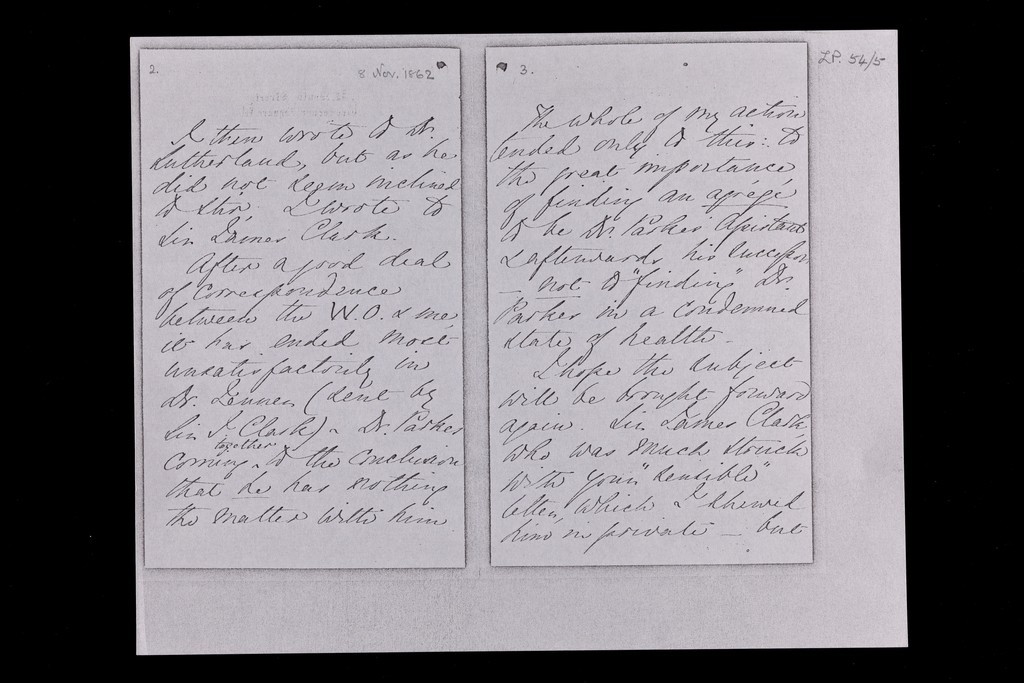 2.
8 Nov. 1862
I then wrote to Dr.
Sutherland, but as he
did not seem inclined
to stir, I wrote to
Sir James Clark.
After a good deal
of correspondence
between the W.O. & me,
it has ended most
unsatisfactorily in
Dr. Jenner (sent by
Sir J. Clark) & Dr. Parkes
coming together to the conclusion
that he has nothing
the matter with him
3.
LP. 54/5
The whole of my action
tended only to this: to
the great importance
of finding an agrégé
to be Dr. Parkes' Assistant
& afterwards his successor
— not to "finding" Dr.
Parkes in a condemned
state of health —
I hope the subject
will be brought forward
again. Sir James Clark,
who was much struck
with your "sensible"
letter, which I shewed
him in private — but